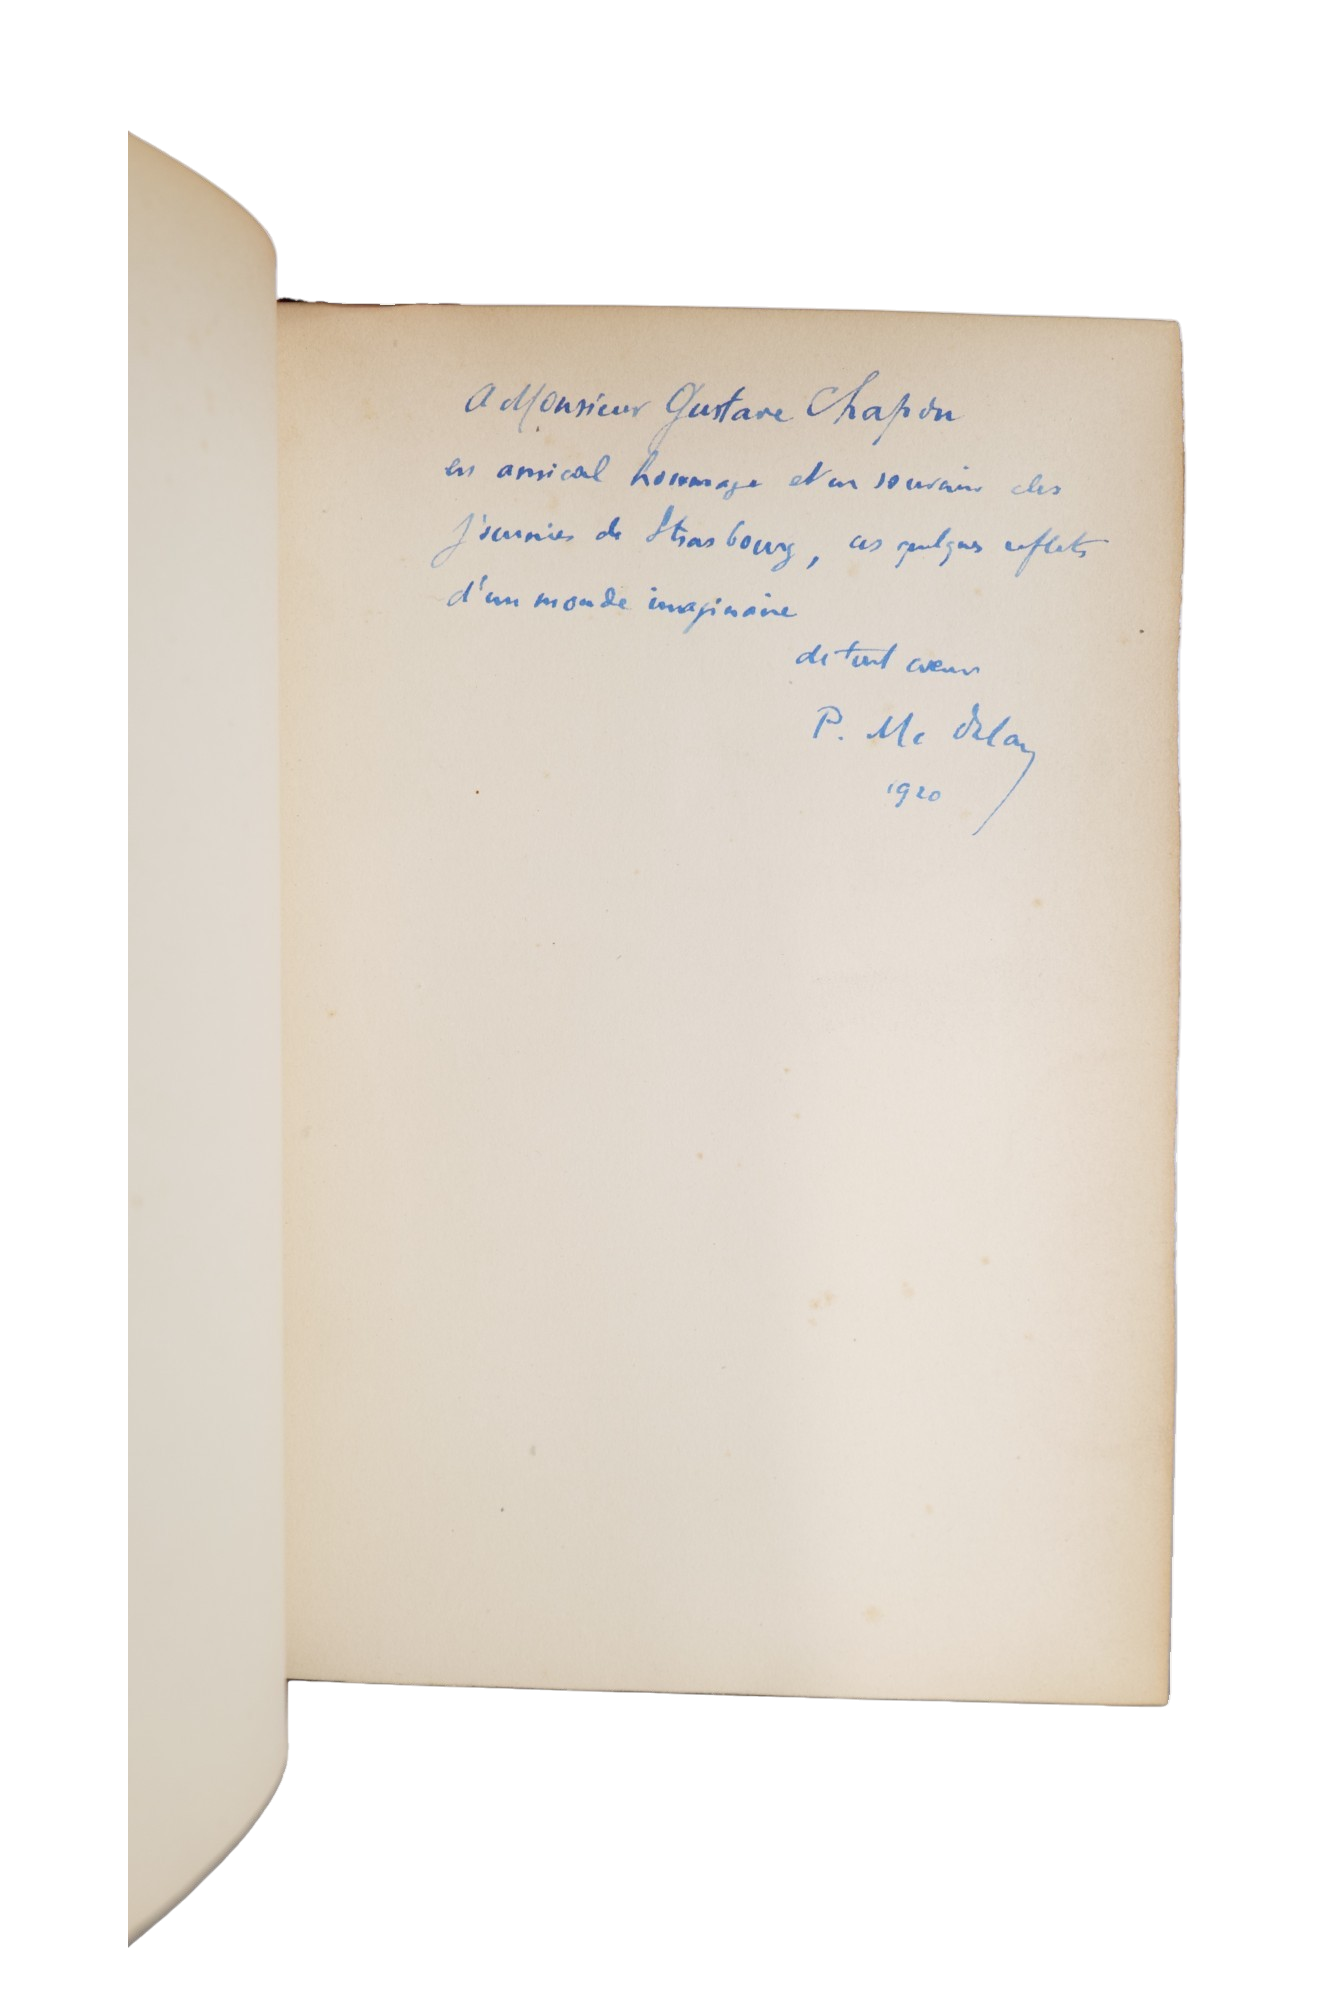 A Monsieur Gustave Chapon
en amical hommage et en souvenir des
journées de Strasbourg, ces quelques reflets
d'un monde imaginaire
de tout coeur
P. Mc Orlan
1920